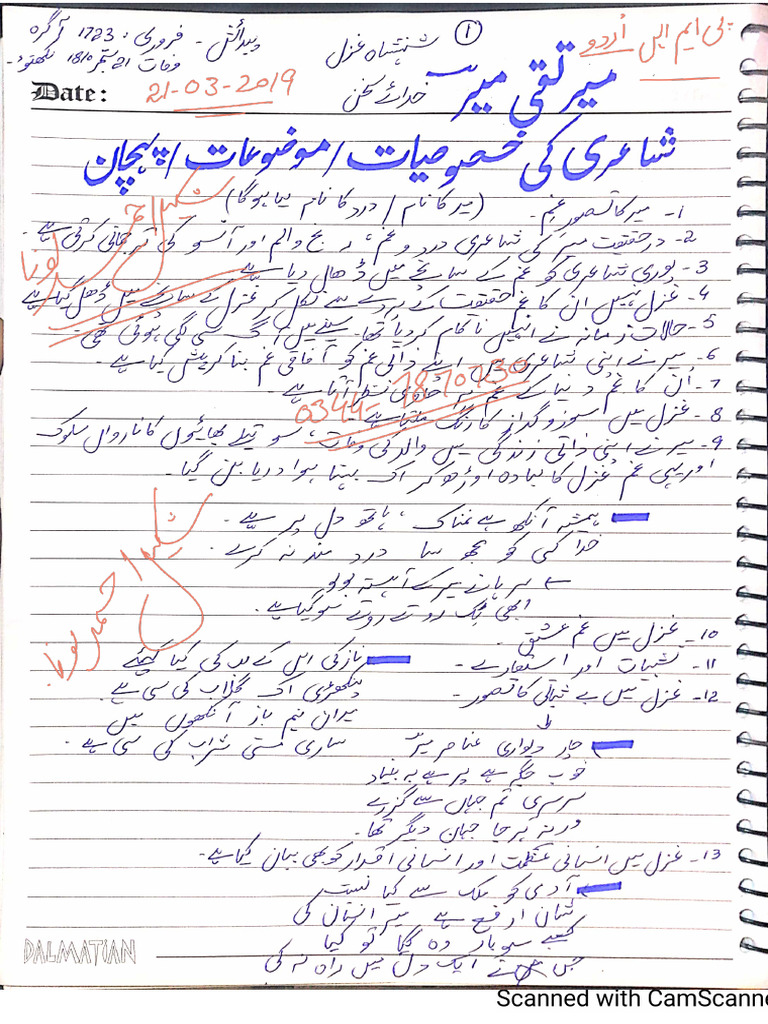 پی ایم ایس اُردو
①
شہنشاہِ غزل
پیدائش - فروری 1723ء آگرہ
وفات 21 ستمبر 1810 لکھنؤ۔
میر تقی میرؔ
خدائے سخن
Date: 21-03-2019
شاعری کی خصوصیات / موضوعات / پہچان
1- میر کا تصورِ غم۔ (میر کا نام / درد کا نام لیا ہوگا)
2- درحقیقت میر کی شاعری درد و غم، رنج و الم اور آنسو کی ترجمانی کرتی ہے۔
3- پوری شاعری کو غم کے سانچے میں ڈھال دیا ہے
4- غزل نہیں ان کا غم حقیقت کے پردے سے نکل کر غزل کے سانچے میں ڈھل گیا ہے
5- حالات زمانہ نے انہیں ناکام کر دیا تھا۔ سینے میں آگ سی لگی ہوئی تھی۔
6- میر نے اپنی شاعری میں اپنے ذاتی غم کو آفاقی غم بنا کر پیش کیا ہے۔
7- اُن کا غم دنیا کے غم پر حاوی نظر آتا ہے۔
8- غزل میں سوز و گداز کا رنگ ملتا ہے
9- میر نے اپنی ذاتی زندگی میں والد کی وفات، سوتیلے بھائیوں کا ناروا سلوک
اور یہی غم غزل کا لبادہ اوڑھ کر اک بہتا ہوا دریا بن گیا۔
ہمیشہ آنکھ ہے نمناک، ہاتھ دل پر ہے۔
خدا کسی کو تجھ سا درد مند نہ کرے۔
سرہانے میر کے آہستہ بولو
ابھی ٹک روتے روتے سو گیا ہے۔
10- غزل میں غمِ عشق۔
11- تشبیات اور استعارے۔
نازکی اس کے لب کی کیا کہئیے
پنکھڑی اک گلاب کی سی ہے
12- غزل میں بے ثباتی کا تصور۔
میر ان نیم باز آنکھوں میں
ساری مستی شراب کی سی ہے۔
چار دیواری عناصر میرؔ
خوب جگہ ہے پر ہے بے بنیاد
سرسری تم جہاں سے گزرے
ورنہ ہر جا جہان دیگر تھا۔
13- غزل میں انسانی عظمت اور انسانی اقدار کو بھی بیان کیا ہے۔
آدمی کو ملک سے کیا نسبت
شان ارفع ہے میر انسان کی
کعبے سو بار وہ گیا تو کیا
جس نے ایک دل میں راہ نہ کی
شکیل احمد لونا
0344-7870730
شکیل احمد لونا
DALMATIAN
Scanned with CamScanne